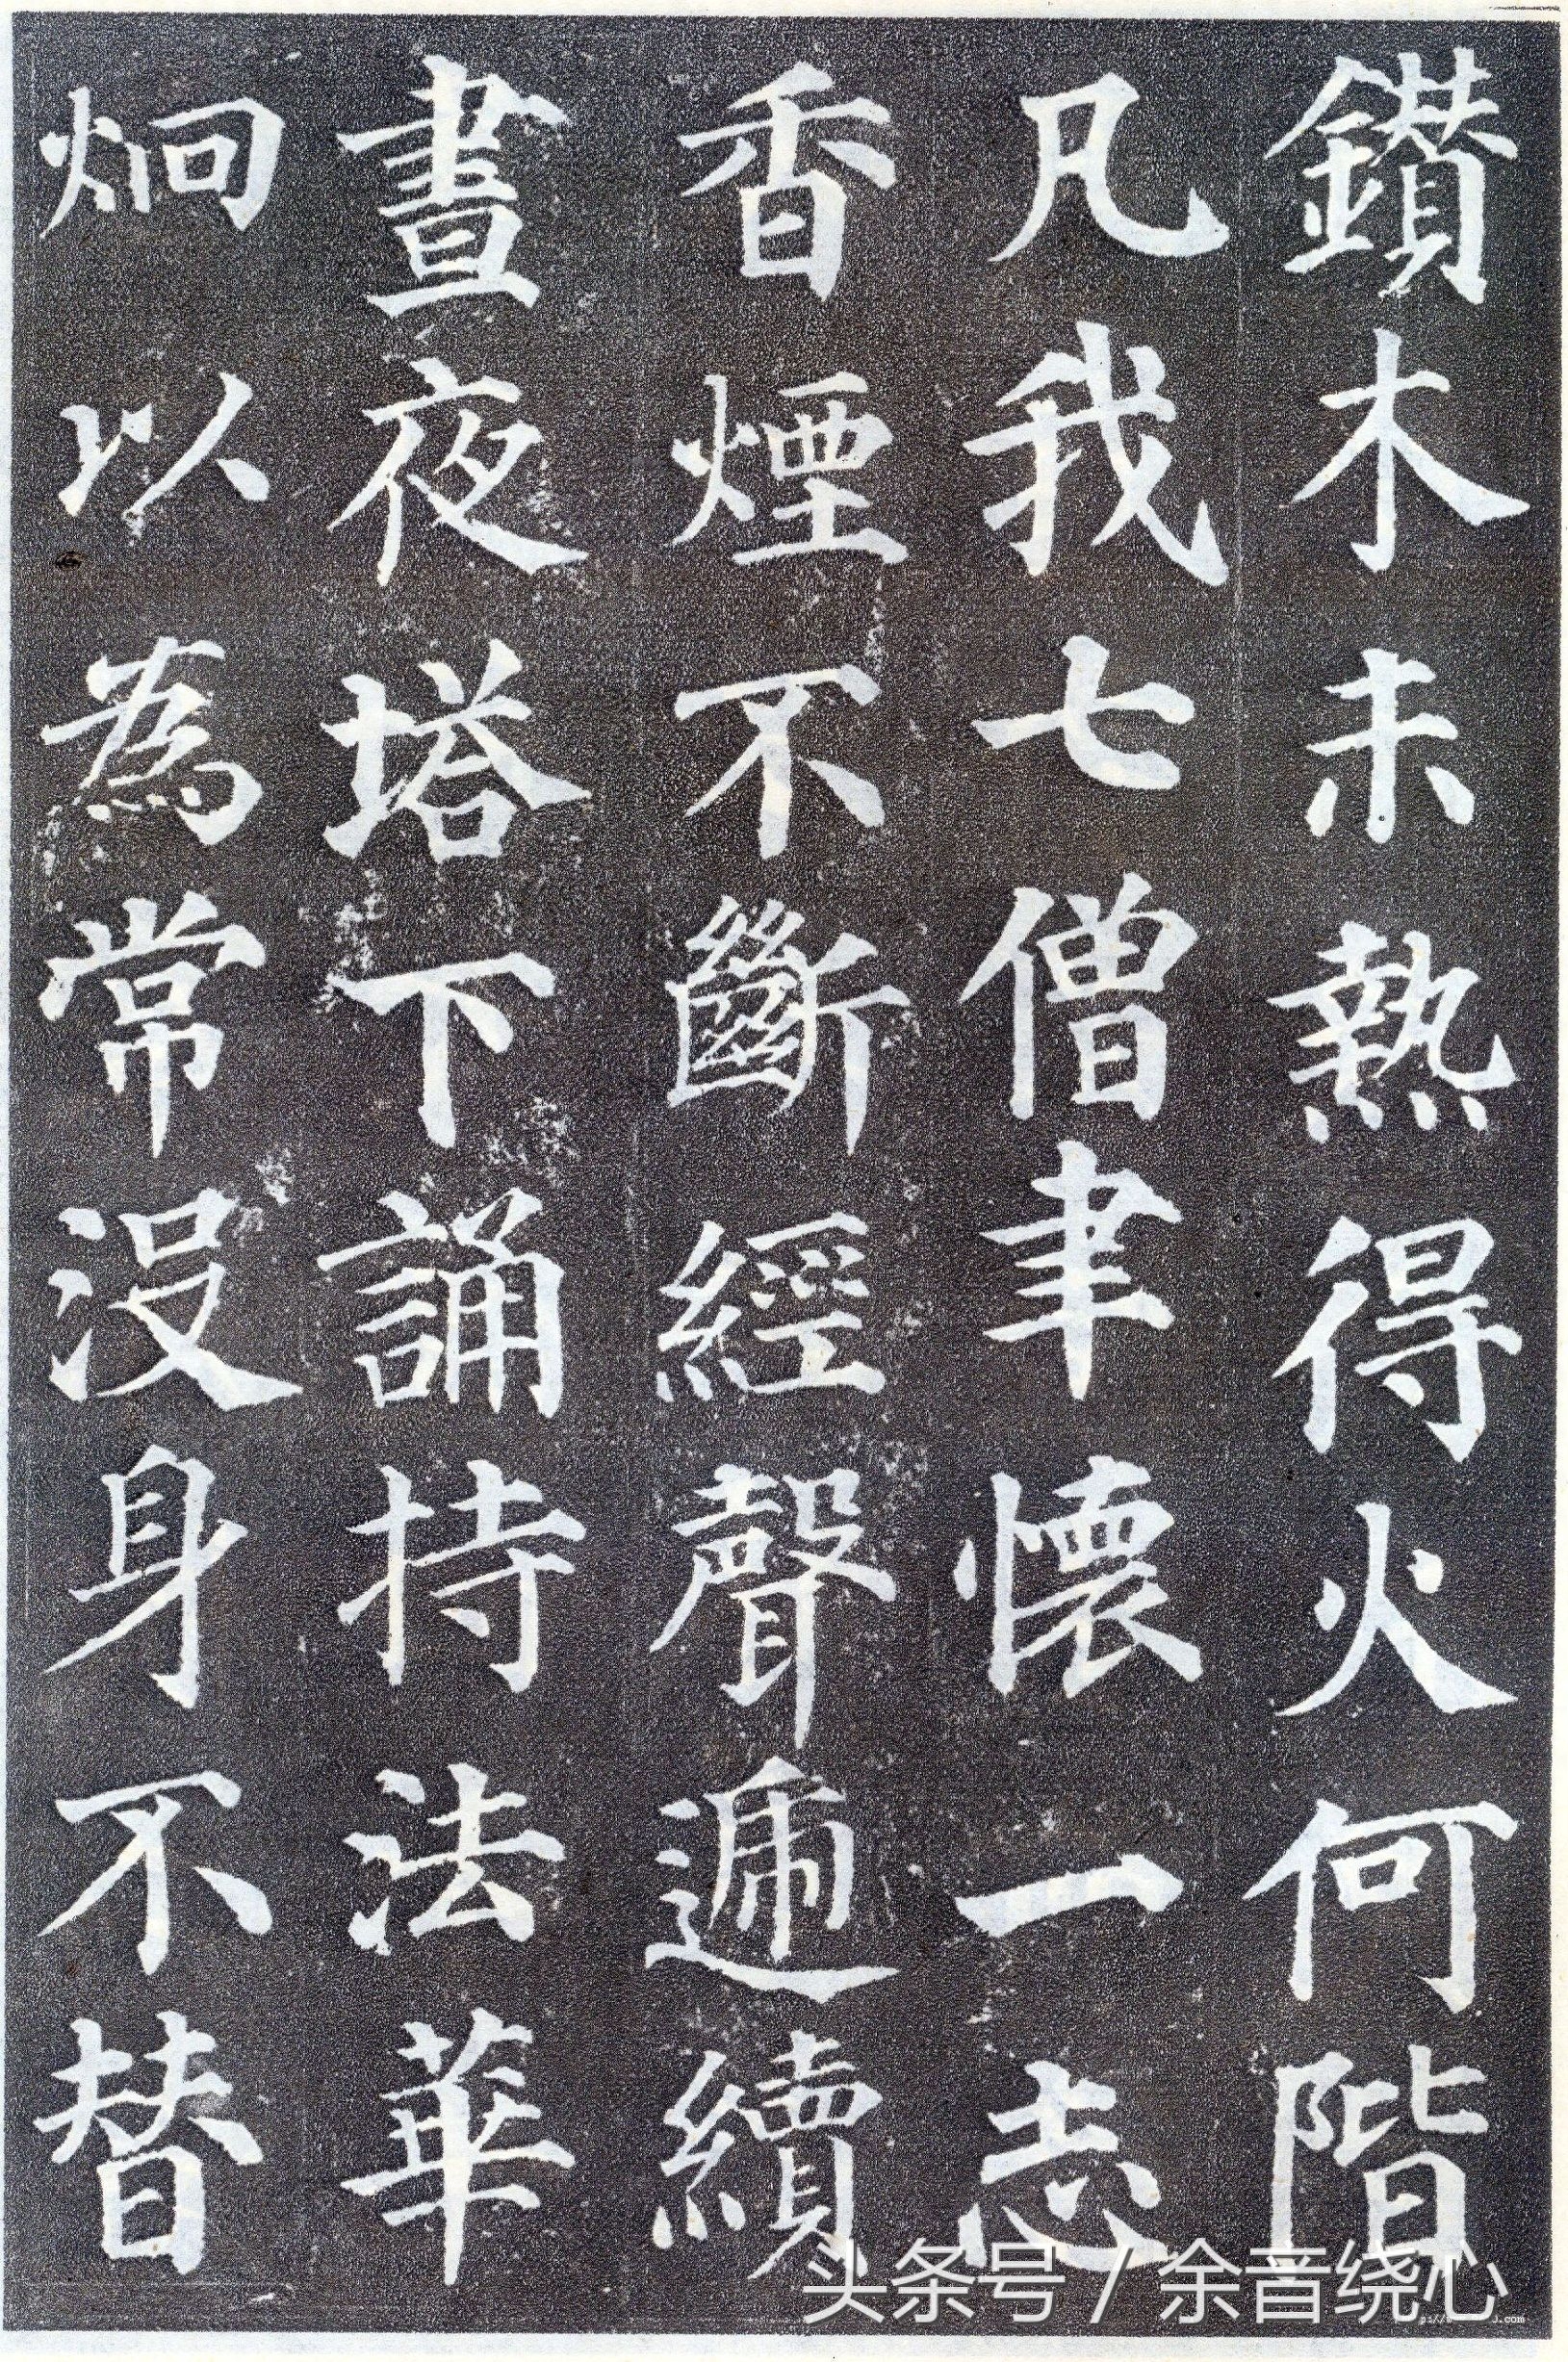 鑚木未熱得火何階
凡我七僧聿懷一志
香煙不斷經聲遞續
晝夜塔下誦持法華
炯以為常没身不替
头条号 / 余音绕心